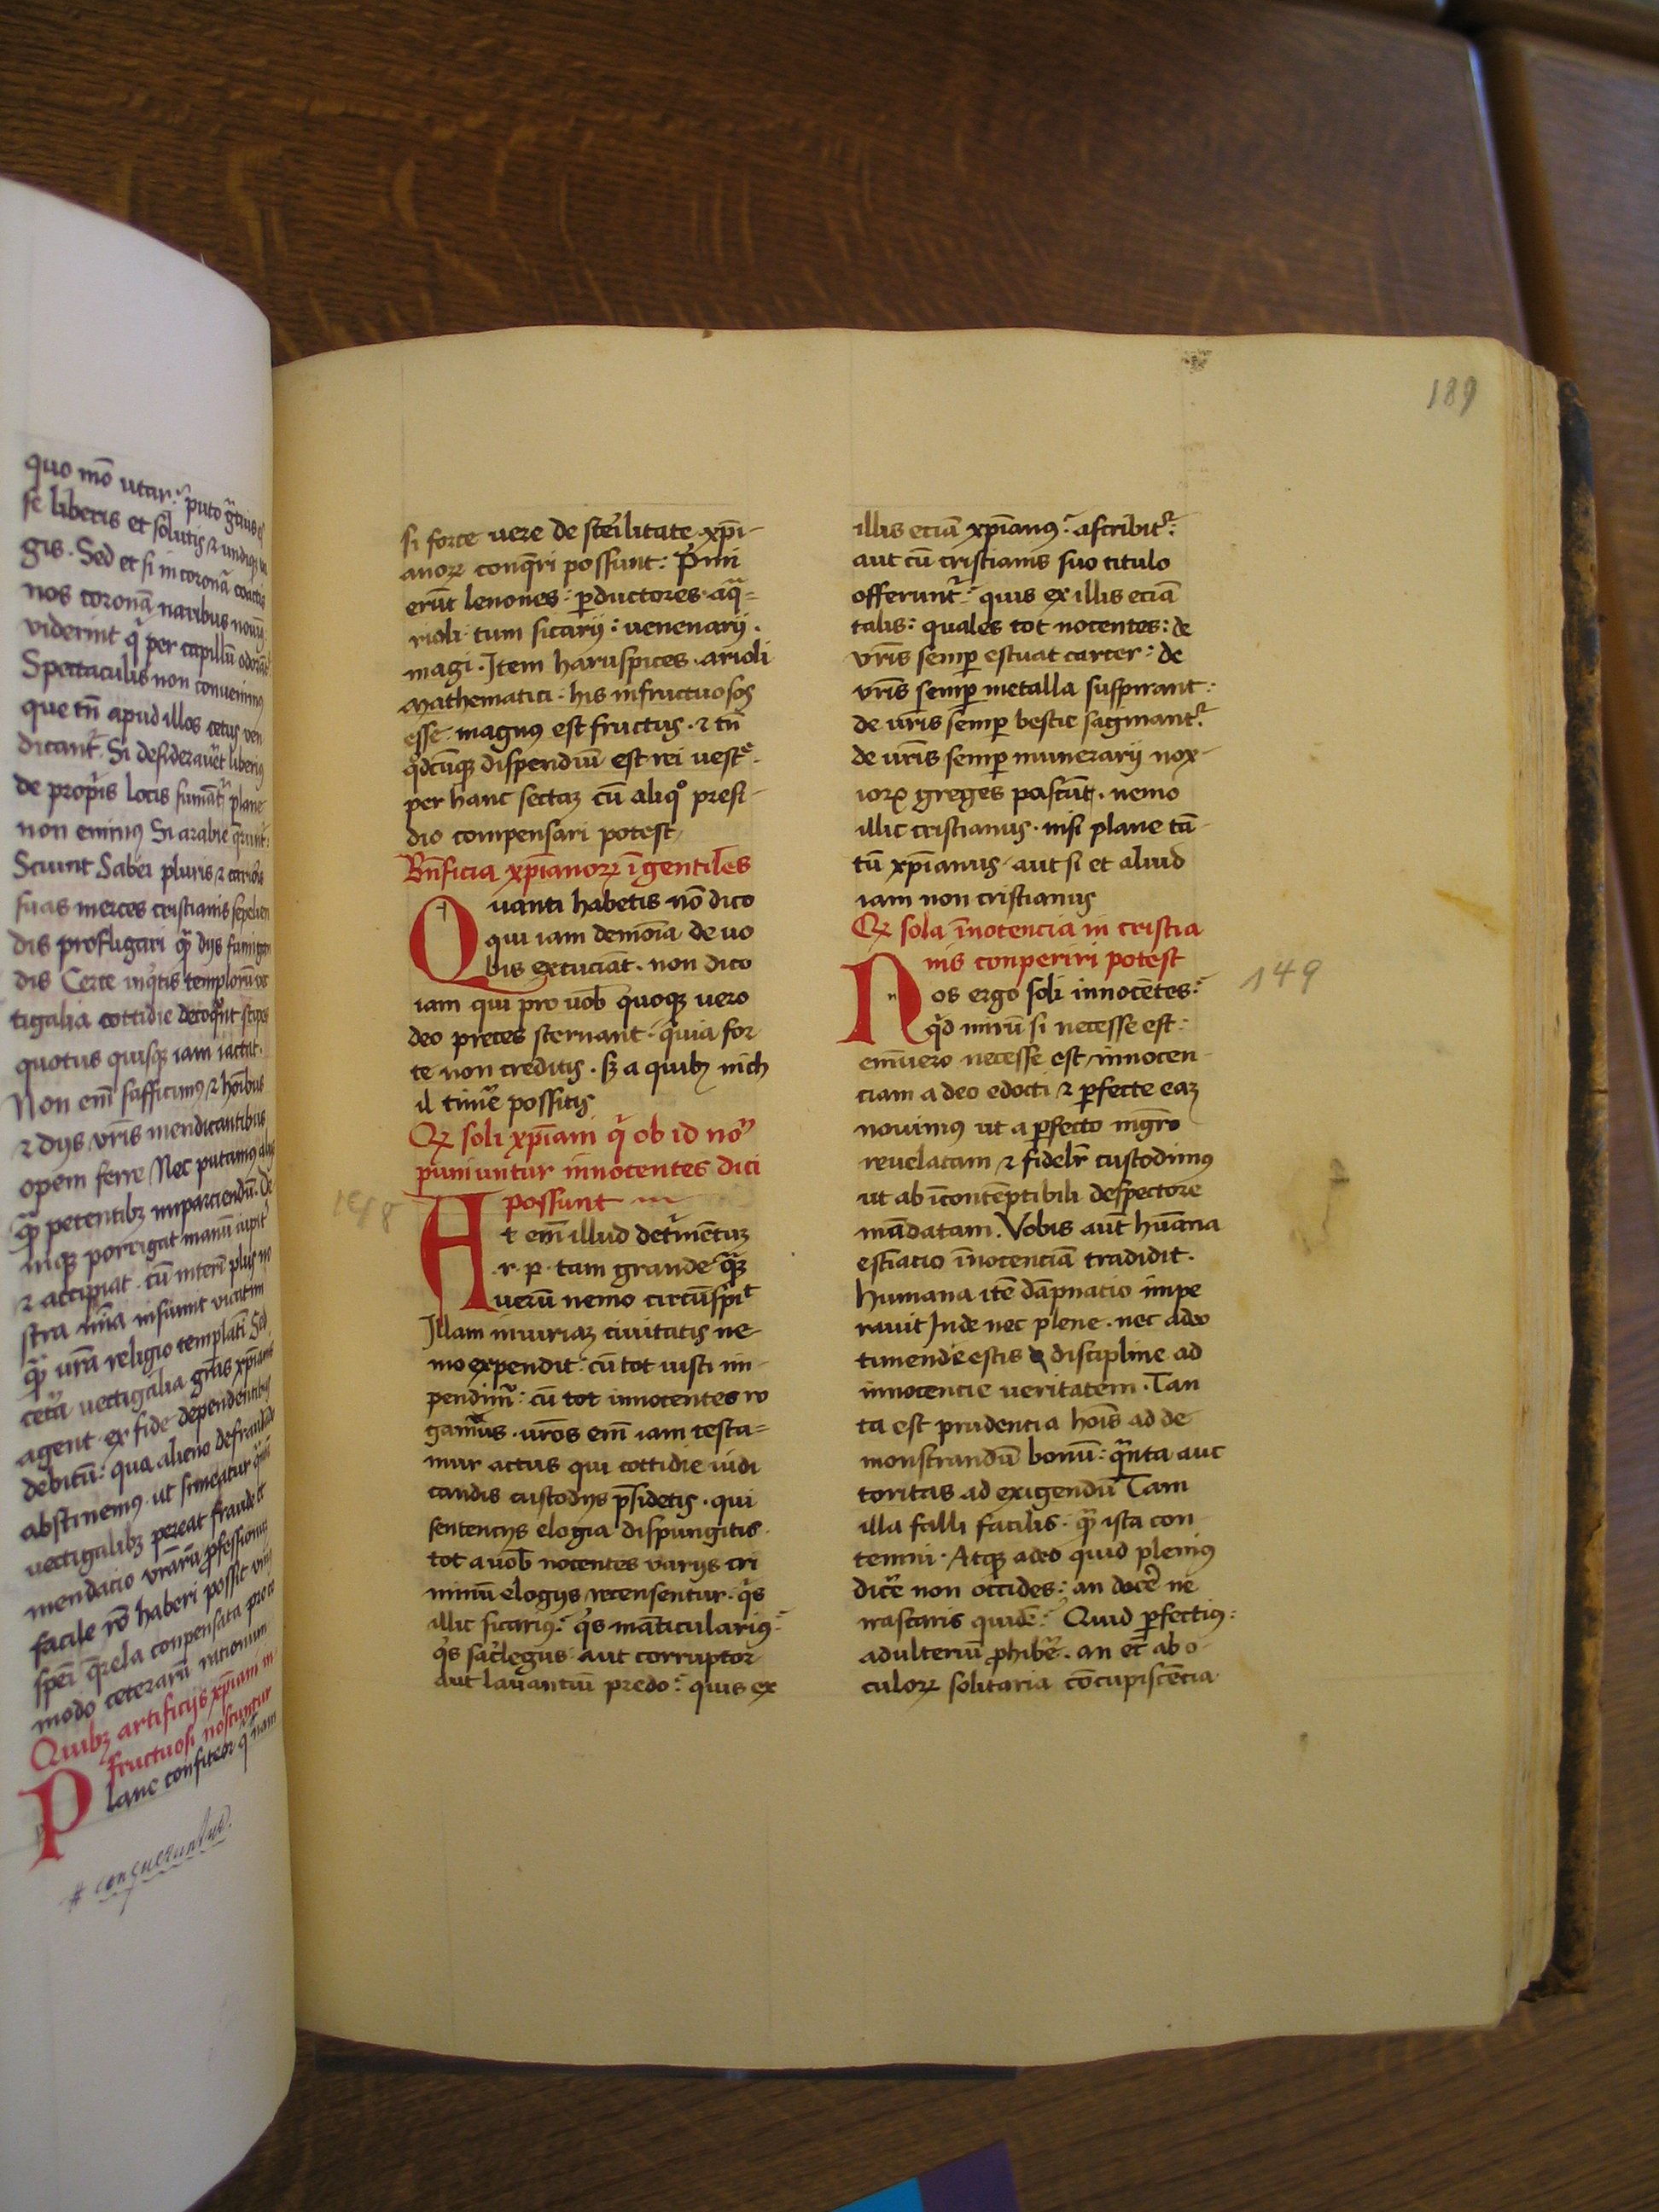 quo mō utar: puto gratius es
se liberis et solutis ⁊ undiqꝫ
gis. Sed et si in coronā coactis
nos coronā naribus nouim
viderint q̄ per capillū odorāt
Spectaculis non conuenimꝰ
que tn̄ apud illos cetus ven
dicant. Si desiderauēt liberiꝰ
de propriis locis sumāt plane
non emimꝰ Si arabie q̄runt
Sciunt Sabei pluris ⁊ carioris
suas merces cristianis sepelien
dis profligari qꝫ diis fumigan
dis Certe inq̄tis templorū ve
tigalia cottidie decoq̄nt stipes
quotus quisqꝫ iam iactat.
Non em̄ sufficimꝰ ⁊ hoībus
⁊ diis vr̄is mendicantibus
opem ferre Nec putamꝰ aliis
qꝫ petentibꝫ imparciendū. De
niqꝫ porrigat manū iupit̄
⁊ accipiat. cū interī plus no
stra mīa insumit vicatim
qꝫ vrā religio templatī Sed
cetā vectigalia gr̄as xp̄ianis
agent ex fide dependentibus
debitū: qua alieno defraudādo
abstinemꝰ. ut si ineatur q̄ntū
vectigalibꝫ pereat fraude et
mendacio vrārū professionū
facile rō haberi possit uniꝰ
spēi q̄rela conpensata pro co
modo ceterarū rationum
Quibꝫ artificiis xp̄iani in
fructuosi noscuntur
Plane confiteor q̄ nam
# conqueruntur.
si forte uere de stēilitate xp̄i-
anoꝝ conq̄ri possunt: Pͥmi
erūt lenones: ꝑductores. aq̄=
rioli. tum sicarij: uenenarij.
magi. Item haruspices. arioli
mathematici: his infructuosos
esse. magnꝰ est fructus. ⁊ tn̄
qd̄cūqꝫ dispendiū est rei uestͤ.
per hanc sectaꝫ cū aliqͦ presi-
dio compensari potest
Bn̄ficia xp̄ianoꝝ ī gentiles
Quanti habetis nō dico
qui iam demōia de uo
bis excuciāt. non dico
iam qui pro uob̄ quoqꝫ uero
deo preces sternant. quia for
te non creditis. sꝫ a quibꝫ nich
il timēe possitis
Qꝫ soli xp̄iani q̄ ob id no͞
puniuntur innocentes dici
possunt
At em̄ illud det̄mētuꝫ
.r. p. tam grande qꝫ
uerū nemo circūspiͭ
Illam iniuriaꝫ ciuitatis ne-
mo expendit: cū tot iusti im-
pendimͬ: cū tot innocentes ro
gamus. vr̄os em̄ iam testa=
mur actus qui cottidie iudi
candis custodijs p̄sidetis. qui
sentencijs elogia dispungitis.
tot a uob̄ nocentes varijs cri
minū elogijs recensentur. q̄s
illic sicariꝰ: q̄s māticulariꝰ:
q̄s sac̄legus aut corruptor
aut lauantiū predo: quis ex
illis eciā xp̄ianꝰ: ascribitͬ:
aut cū cristianis suo titulo
offeruntͬ: quis ex illis eciā
talis: quales tot nocentes: de
vr̄is semꝑ estuat carcer: de
vr̄is semꝑ metalla suspirant:
de vr̄is semꝑ bestie saginantͬ:
de vr̄is semꝑ munerarij nox-
ioꝝ greges pascūt. nemo
illic cristianus. nisi plane tā-
tū xp̄ianus. aut si et aliud
iam non cristianus
Qꝫ sola īnocencia in cristia
nis conperiri potest
Nos ergo soli innocētes:
qͥd mirū si necesse est:
eniūero necesse est innocen-
ciam a deo edocti ⁊ ꝑfecte eaꝫ
nouimꝰ ut a ꝑfecto mgr̄o
reuelatam ⁊ fidelr̄ custodimꝰ
ut ab īcontēptibili despectore
mādatam. Vobis aut̄ hūana
estiacio īnocenciā tradidit.
humana itē dāpnacio impe
rauit Inde nec plene. nec adeo
timende estis discipline ad
innocencie veritatem. Tan
ta est prudencia hoīs ad de
monstrandū bonū: q̄nta auc
toritas ad exigendū Tam
illa falli facilis. qꝫ ista con
temni. Atqꝫ adeo quid pleniꝰ
dicēe non occides: an docēe ne
irascaris quidē: Quid ꝑfectiꝰ:
adulteriū ꝓhibēe. an et̄ ab o-
culoꝝ solitaria cōcupiscēcia
189
148
149